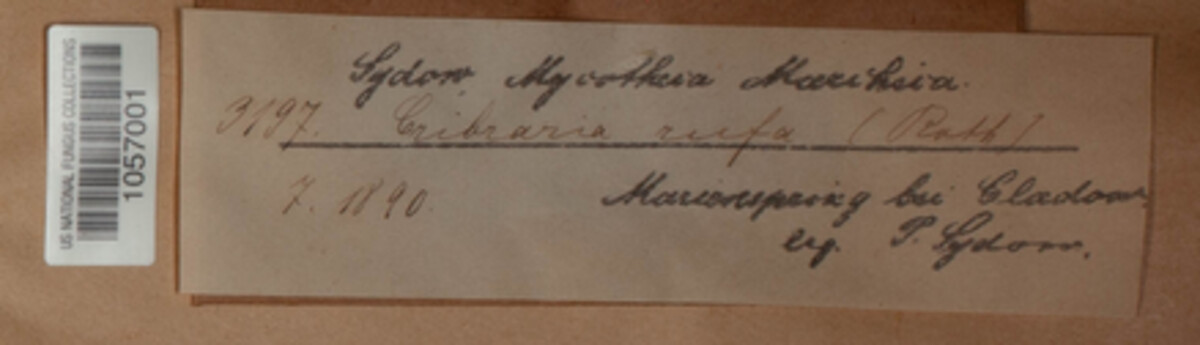 US NATIONAL FUNGUS COLLECTIONS
1057001
Sydow, Mycotheca Marchica.
3197. Cribraria rufa (Roth)
7. 1890.
Marienspring bei Cladow
leg. P. Sydow.